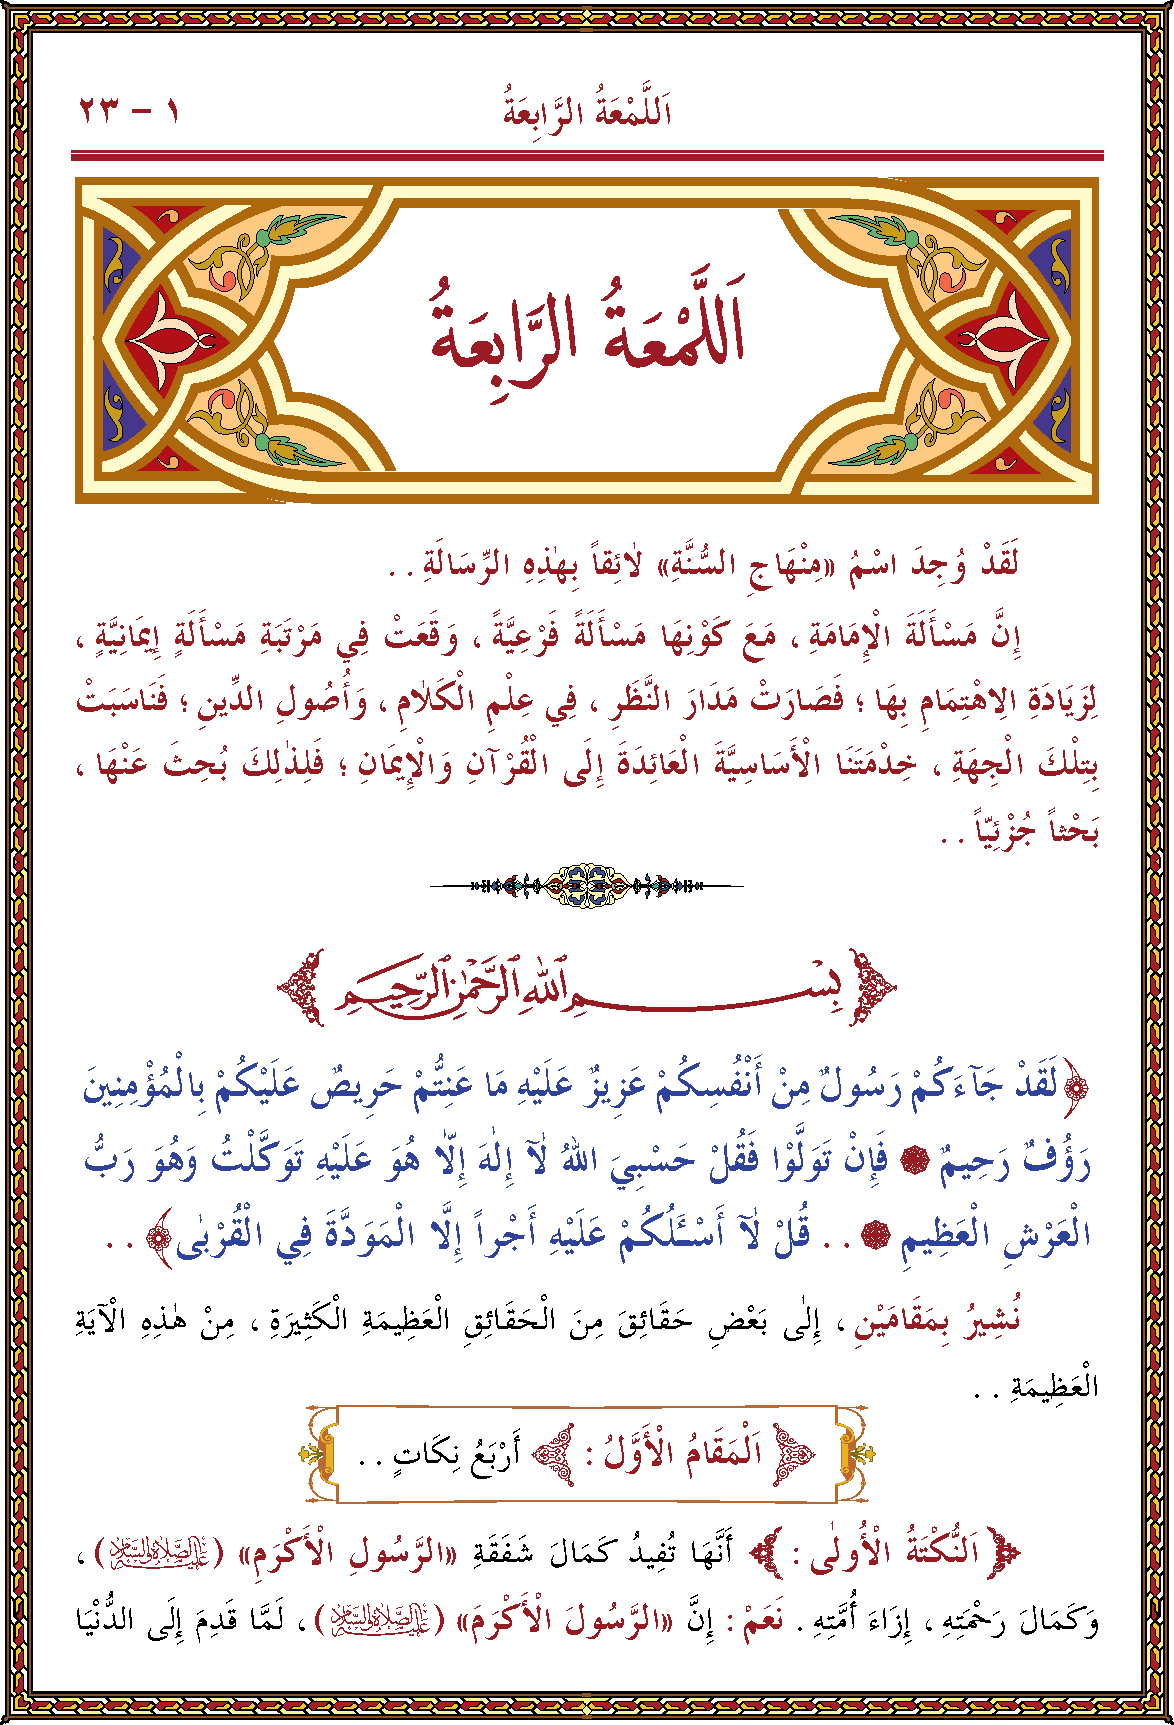 اَللَّمْعَةُ الرَّابِعَةُ
١ - ٢٣
اَللَّمْعَةُ الرَّابِعَةُ
لَقَدْ وُجِدَ اسْمُ «مِنْهَاجِ السُّنَّةِ» لاٰئِقاً بِهٰذِهِ الرِّسَالَةِ . .
إِنَّ مَسْأَلَةَ الْإِمَامَةِ ، مَعَ كَوْنِهَا مَسْأَلَةً فَرْعِيَّةً ، وَقَعَتْ فِي مَرْتَبَةِ مَسْأَلَةٍ إِيمَانِيَّةٍ ،
لِزَيَادَةِ الِاهْتِمَامِ بِهَا ؛ فَصَارَتْ مَدَارَ النَّظَرِ ، فِي عِلْمِ الْكَلاٰمِ ، وَأُصُولِ الدِّينِ ؛ فَنَاسَبَتْ
بِتِلْكَ الْجِهَةِ ، خِدْمَتَنَا الْأَسَاسِيَّةَ الْعَائِدَةَ إِلَى الْقُرْآنِ وَالْإِيمَانِ ؛ فَلِذٰلِكَ بُحِثَ عَنْهَا ،
بَحْثاً جُزْئِيّاً . .
بِسْمِ اللّٰهِ الرَّحْمٰنِ الرَّحِيمِ
﴿لَقَدْ جَآءَكُمْ رَسُولٌ مِنْ أَنْفُسِكُمْ عَزِيزٌ عَلَيْهِ مَا عَنِتُّمْ حَرِيصٌ عَلَيْكُمْ بِالْمُؤْمِنِينَ
رَؤُفٌ رَحِيمٌ ۝ فَإِنْ تَوَلَّوْا فَقُلْ حَسْبِيَ اللّٰهُ لَآ إِلٰهَ إِلَّا هُوَ عَلَيْهِ تَوَكَّلْتُ وَهُوَ رَبُّ
الْعَرْشِ الْعَظِيمِ ۝ . . قُلْ لَآ أَسْـَٔلُكُمْ عَلَيْهِ أَجْراً إِلَّا الْمَوَدَّةَ فِي الْقُرْبٰى﴾ . .
نُشِيرُ بِمَقَامَيْنِ ، إِلٰى بَعْضِ حَقَائِقَ مِنَ الْحَقَائِقِ الْعَظِيمَةِ الْكَثِيرَةِ ، مِنْ هٰذِهِ الْآيَةِ
الْعَظِيمَةِ . .
اَلْمَقَامُ الْأَوَّلُ : أَرْبَعُ نِكَاتٍ . .
اَلنُّكْتَةُ الْأُولٰى : أَنَّهَا تُفِيدُ كَمَالَ شَفَقَةِ «الرَّسُولِ الْأَكْرَمِ» (عَلَيْهِ الصَّلَاةُ وَالسَّلَامُ) ،
وَكَمَالَ رَحْمَتِهِ ، إِزَاءَ أُمَّتِهِ . نَعَمْ : إِنَّ «الرَّسُولَ الْأَكْرَمَ» (عَلَيْهِ الصَّلَاةُ وَالسَّلَامُ) ، لَمَّا قَدِمَ إِلَى الدُّنْيَا